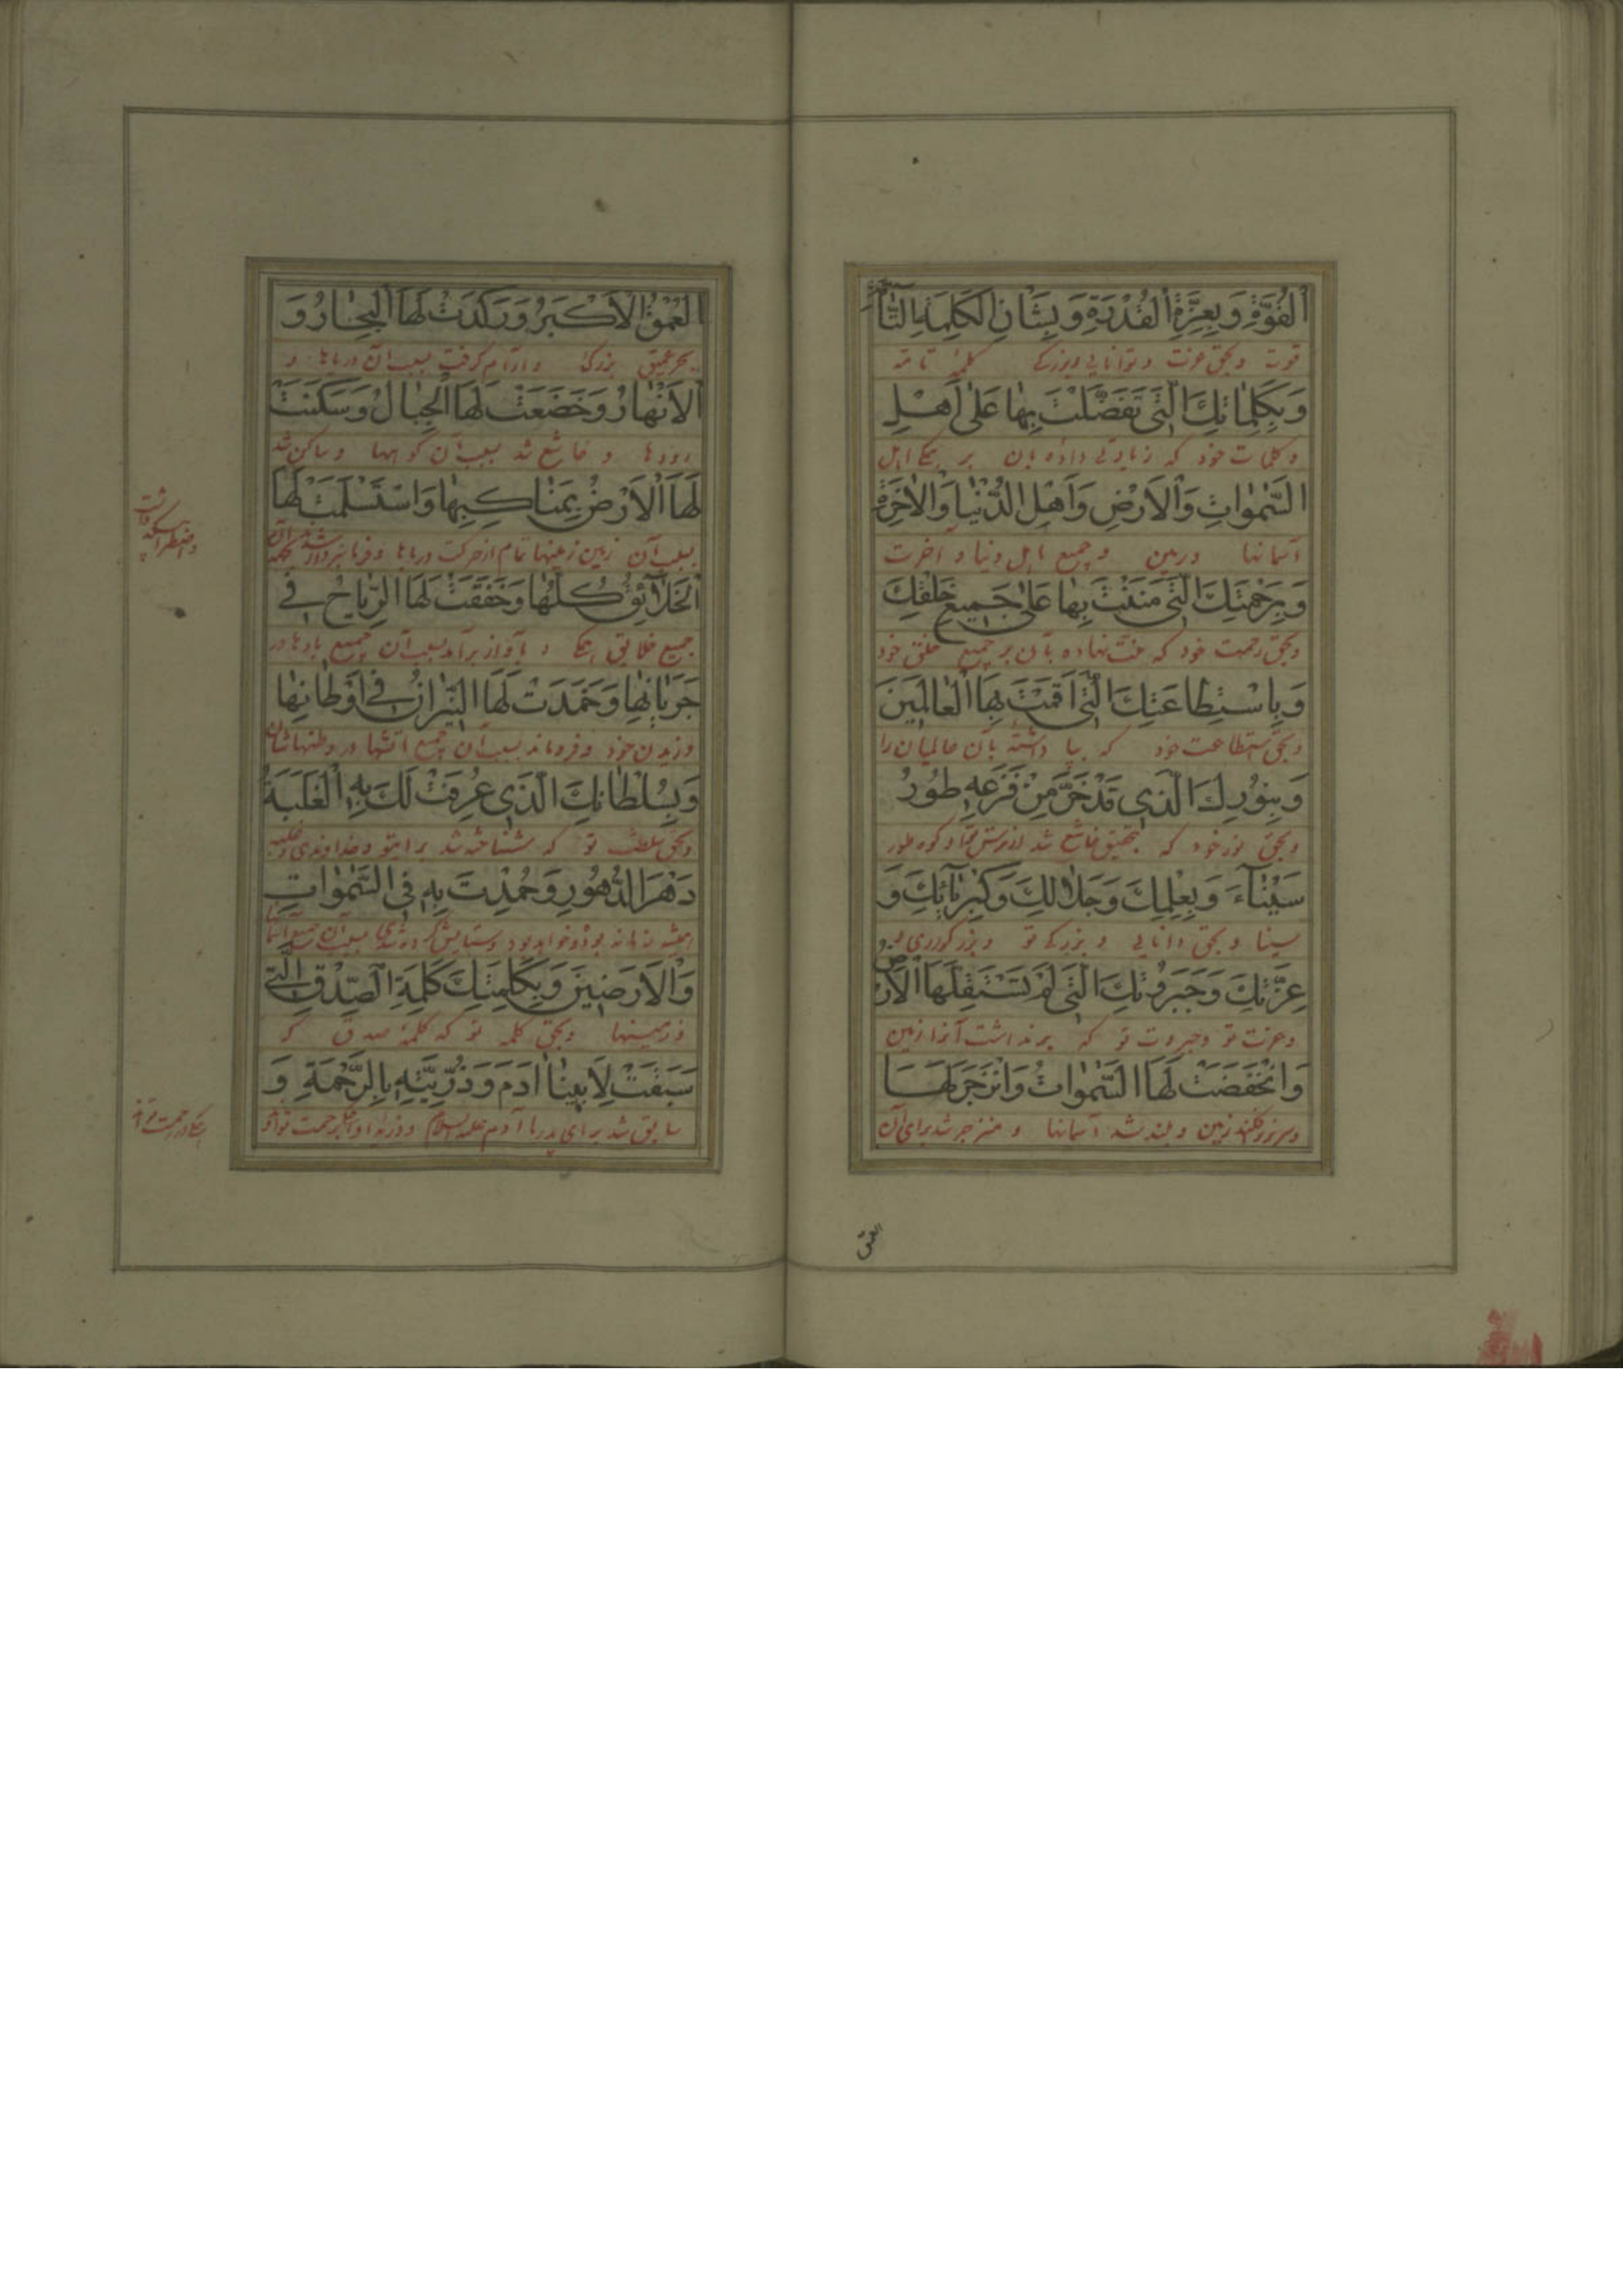 اَلْقُوَّةِ وَبِعِزَّةِ الْقُدْرَةِ وَبِشَاْنِ الْكَلِمَةِ التّٰآمَّةِ
قوت و بحق عزت و توانایی و بزرگی کلمهٔ تامه
وَبِكَلِمٰاتِكَ الَّتي تَفَضَّلْتَ بِهٰا عَلٰى اَهْلِ
و کلمات خود که زیادتی داده بان بر همگی اهل
السَّمٰوٰاتِ وَالْاَرْضِ وَاَهْلِ الدُّنْيٰا وَالْاٰخِرَةِ
آسمانها و زمین و جمیع اهل دنیا و اخرت
وَبِرَحْمَتِكَ الَّتي مَنَنْتَ بِهٰا عَلٰى جَميعِ خَلْقِكَ
و بحق رحمت خود که منت نهاده بآن بر جمیع خلق خود
وَبِاسْتِطٰاعَتِكَ الَّتي اَقَمْتَ بِهَا الْعٰالَمينَ
و بحق استطاعت خود که بپا داشته بآن عالمیان را
وَبِنُورِكَ الَّذي قَدْ خَرَّ مِنْ فَزَعِهِ طُورُ
و بحق نور خود که بتحقیق خاشع شد از ترس کوه طور
سَيْنٰآءَ وَبِعِلْمِكَ وَجَلٰالِكَ وَكِبْرِيٰآئِكَ وَ
سینا و بحق دانایی و بزرگی تو و بزرگواری
عِزَّتِكَ وَجَبَرُوتِكَ الَّتي لَمْ تَسْتَقِلَّهَا الْاَرْضُ
و عزت تو و جبروت تو که برنداشت آنرا زمین
وَانْخَفَضَتْ لَهَا السَّمٰوٰاتُ وَانْزَجَرَ لَهَا
زمین و بلند شد آسمانها و منزجر شد برای آن
العمق
الْعُمْقُ الْاَكْبَرُ وَرَكَدَتْ لَهَا الْبِحٰارُ وَ
بحر عمیق بزرگ و آرام گرفت بسبب آن دریاها و
الْاَنْهٰارُ وَخَضَعَتْ لَهَا الْجِبٰالُ وَسَكَنَتْ
رودها و خاشع شد بسبب آن کوهها و ساکن شد
لَهَا الْاَرْضُ بِمَنٰاكِبِهٰا وَاسْتَسْلَمَتْ لَهَا
بسبب آن زمین زمینها تمام از حرکت دریاها و فرمانبردار شد
الْخَلٰآئِقُ كُلُّهٰا وَخَفَقَتْ لَهَا الرِّيٰاحُ في
جمیع خلایق همگی و بآواز برآمد بسبب آن جمیع بادها در
جَرَيٰانِهٰا وَخَمَدَتْ لَهَا النّيرٰانُ في اَوْطٰانِهٰا
وزیدن خود و فروماند بسبب آن جمیع آتشها در وطنهاشان
وَبِسُلْطٰانِكَ الَّذي عُرِفَتْ لَكَ بِهِ الْغَلَبَةُ
و بحق سلطنت تو که شناخته شد برای تو خداوندی و غلبه
دَهْرَ الدُّهُورِ وَحُمِدْتَ بِهِ فِي السَّمٰوٰاتِ
همیشه زمانه بود و خواهد بود و ستایش کرده شدی بسبب آن
وَالْاَرَضينَ وَبِكَلِمَتِكَ كَلِمَةِ الصِّدْقِ الَّتي
و زمینها و بحق کلمه تو که کلمهٔ صدق که
سَبَقَتْ لِاَبينٰا اٰدَمَ وَذُرِّيَّتِهِ بِالرَّحْمَةِ وَ
سابق شد برای پدر ما آدم علیه السلام و ذریه او